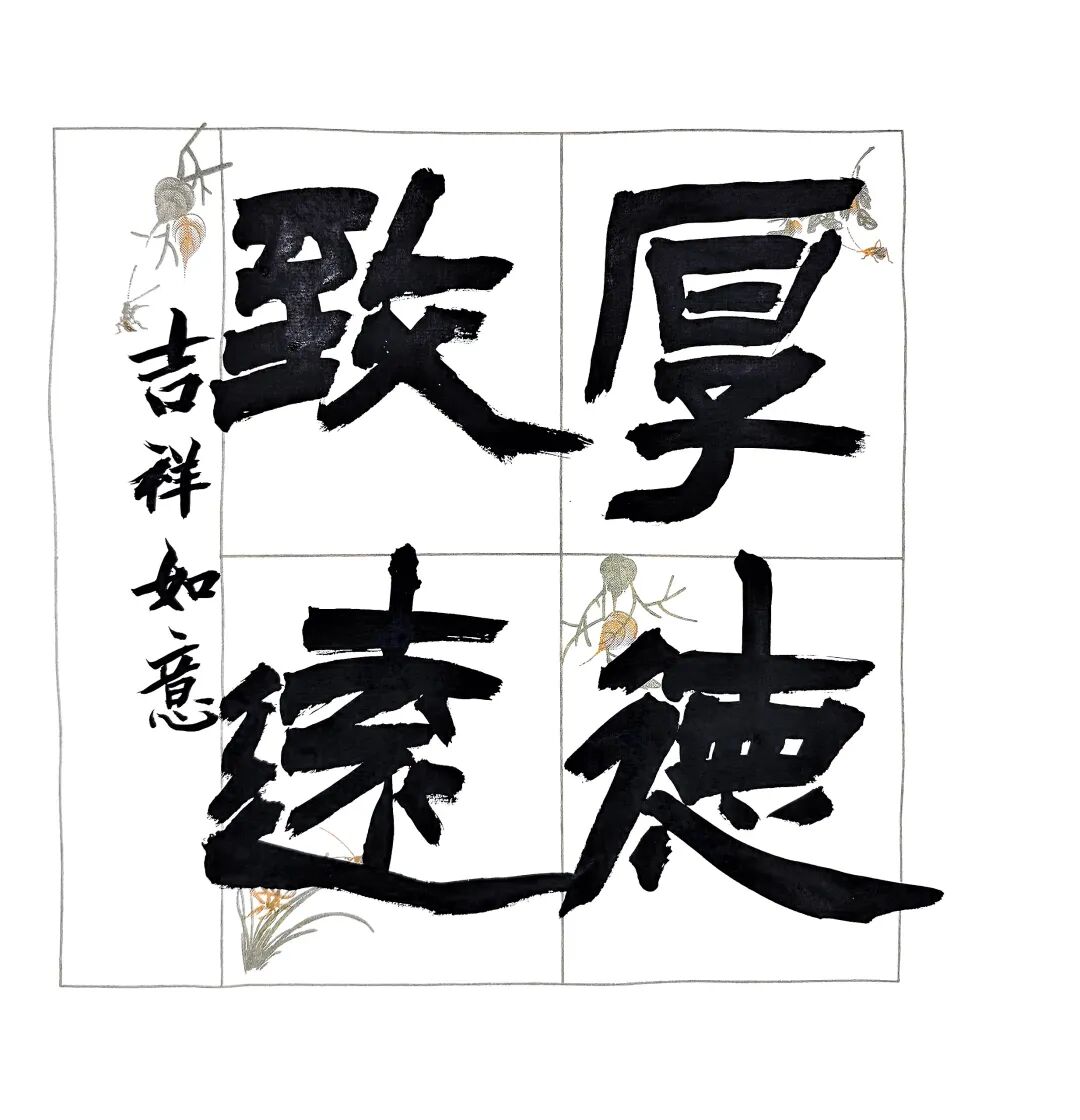 厚德
致遠
吉祥如意